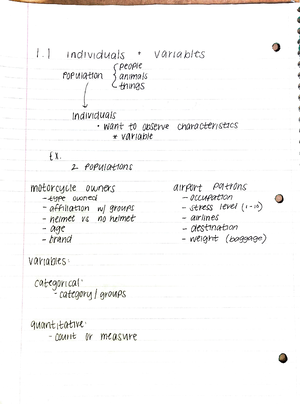 1.1 individuals + variables
population { people
animals
things
individuals
• want to observe characteristics
* variable
Ex.
2 populations
motorcycle owners
- type owned
- affiliation w/ groups
- helmet vs no helmet
- age
- brand
airport patrons
- occupation
- stress level (1-10)
- airlines
- destination
- weight (baggage)
variables:
categorical:
- category/groups
quantitative:
- count or measure